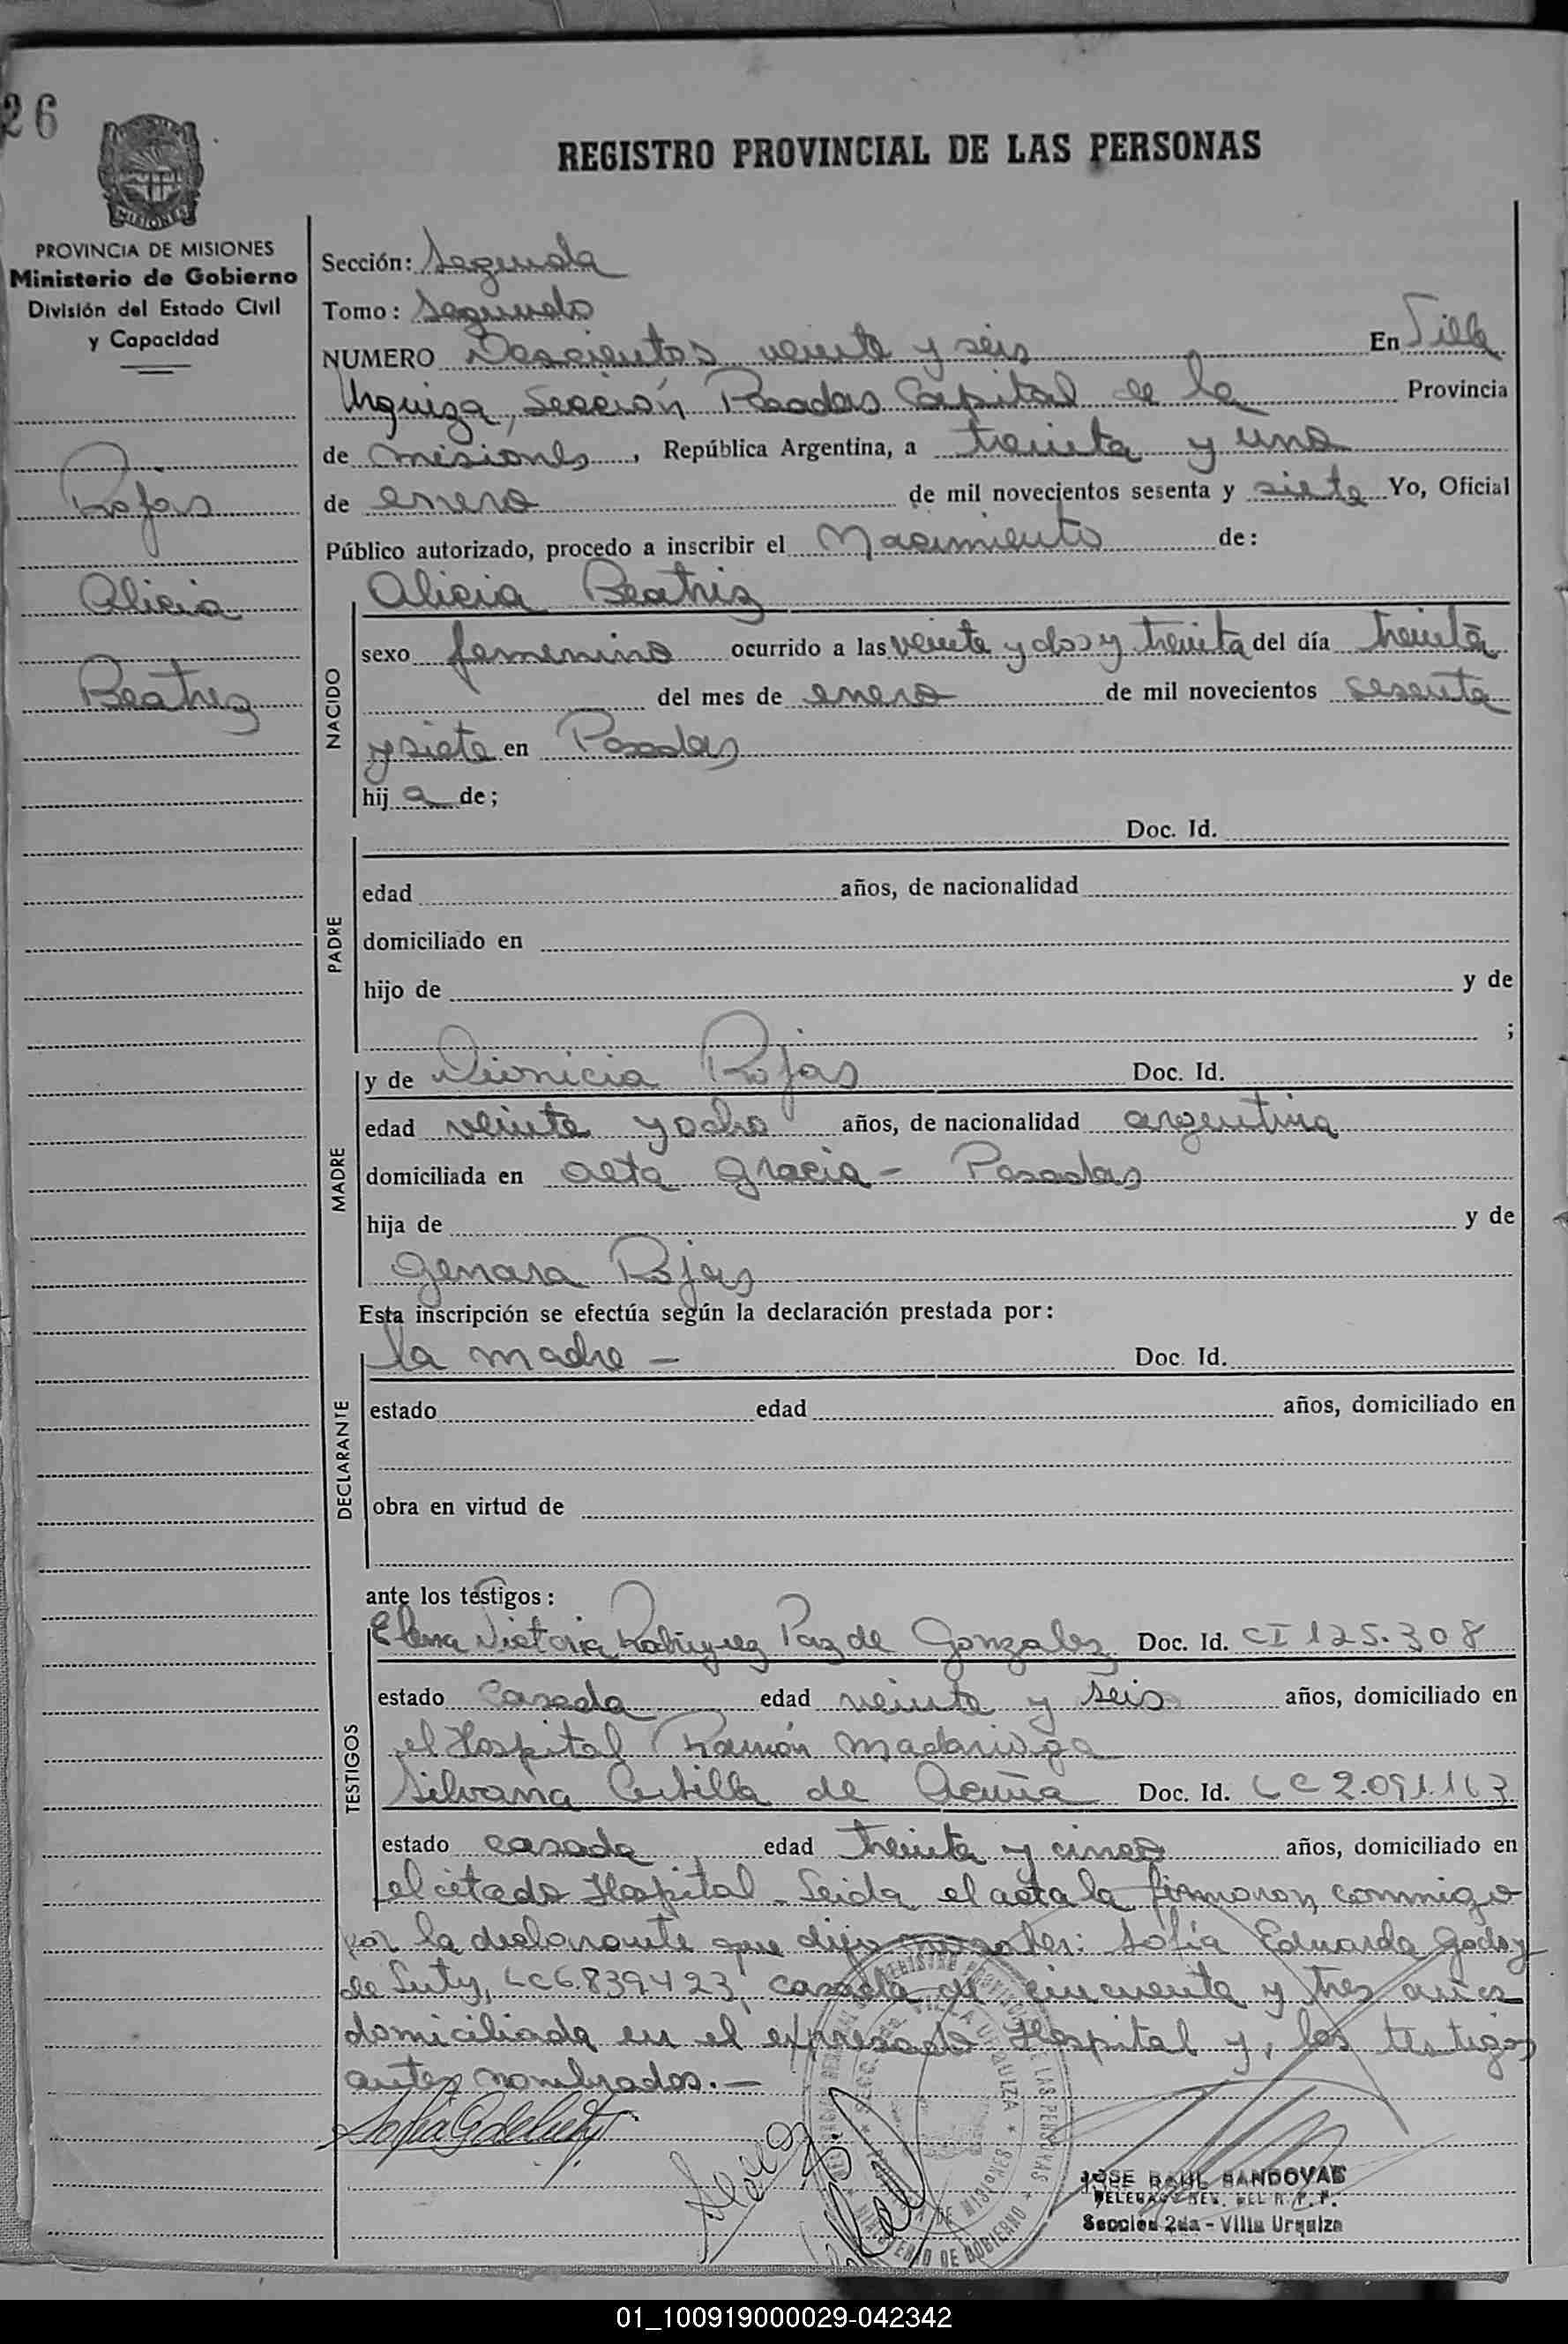 26
REGISTRO PROVINCIAL DE LAS PERSONAS
MISIONES
PROVINCIA DE MISIONES
Ministerio de Gobierno
División del Estado Civil
y Capacidad
Rojas
Alicia
Beatriz
Sección: Segunda
Tomo: Segundo
NUMERO Doscientos veinte y séis En Villa
Urquiza, Sección Posadas Capital de la Provincia
de misiones, República Argentina, a treinta y uno
de enero de mil novecientos sesenta y siete Yo, Oficial
Público autorizado, procedo a inscribir el Nacimiento de:
NACIDO
Alicia Beatriz
sexo femenino ocurrido a las veinte y dos y treinta del día treinta
del mes de enero de mil novecientos sesenta
y siete en Posadas
hij a de;
PADRE
Doc. Id.
edad años, de nacionalidad
domiciliado en
hijo de y de
;
MADRE
y de Dionicia Rojas Doc. Id.
edad veinte y ocho años, de nacionalidad argentina
domiciliada en alta gracia - Posadas
hija de y de
Genara Rojas
Esta inscripción se efectúa según la declaración prestada por:
DECLARANTE
la madre - Doc. Id.
estado edad años, domiciliado en
obra en virtud de
ante los testigos:
TESTIGOS
Elena Victoria Rodriguez Paz de Gonzalez Doc. Id. CI 125.308
estado casada edad veinte y séis años, domiciliado en
el Hospital Ramón Madariaga
Silvana de Acuña Doc. Id. LC 2.091.163
estado casada edad treinta y cinco años, domiciliado en
el citado Hospital - Leida el acta la firmaron conmigo
por la declarante que dijo no saber: Sofia Eduarda Godoy
de Luty, LC 6.839423, casada de cincuenta y tres años
domiciliada en el expresado Hospital y, los testigos
antes nombrados.-
Sofia G de Luty
JOSE RAUL SANDOVAL
DELEGADO DEL R. P. P.
Sección 2da - Villa Urquiza
01_100919000029-042342